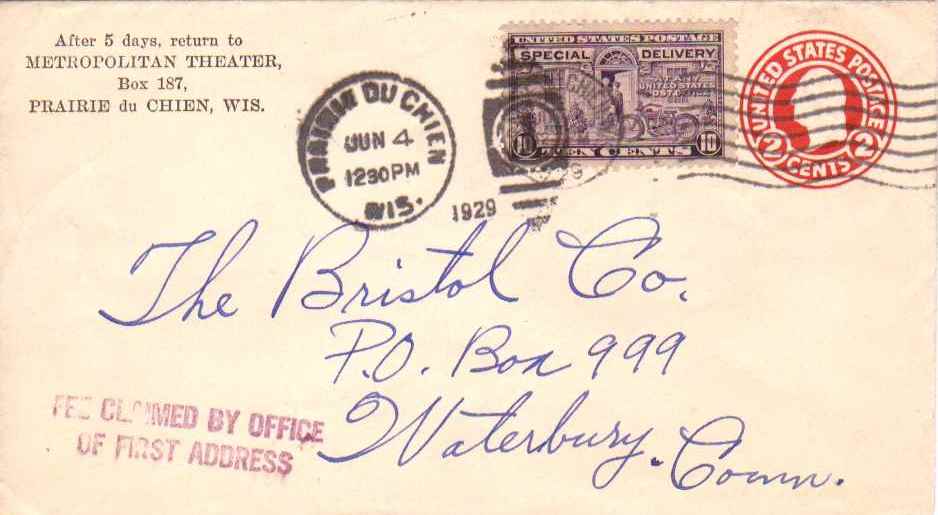 After 5 days, return to
METROPOLITAN THEATER,
Box 187,
PRAIRIE du CHIEN, WIS.
PRAIRIE DU CHIEN
JUN 4
1230PM
WIS.
1929
UNITED STATES POSTAGE
SPECIAL DELIVERY
UNITED STATES
POST OFFICE
10 TEN CENTS 10
UNITED STATES POSTAGE
2 CENTS 2
The Bristol Co.
P.O. Box 999
Waterbury. Conn.
FEE CLAIMED BY OFFICE
OF FIRST ADDRESS